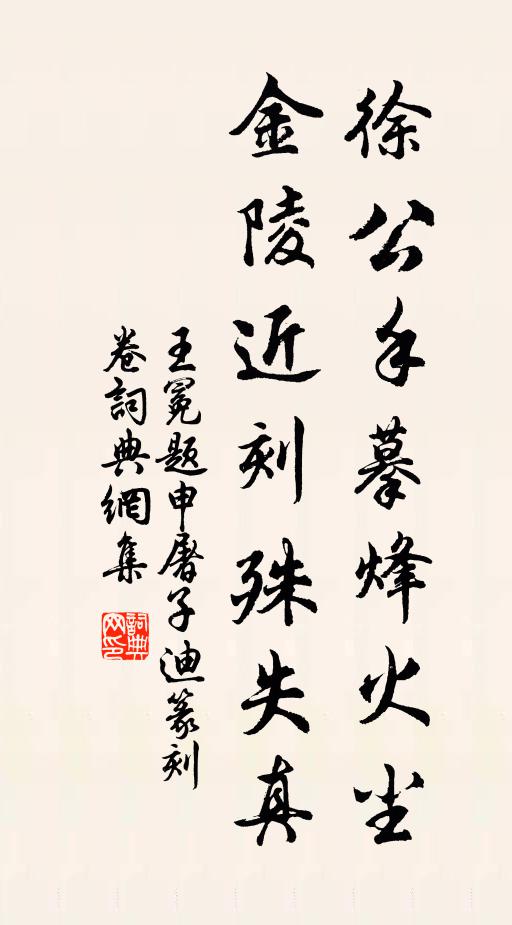 徐公手摹烽火尘
金陵近刻殊失真
王冕题申屠子迪篆刻
卷詞典網集
詞典网印